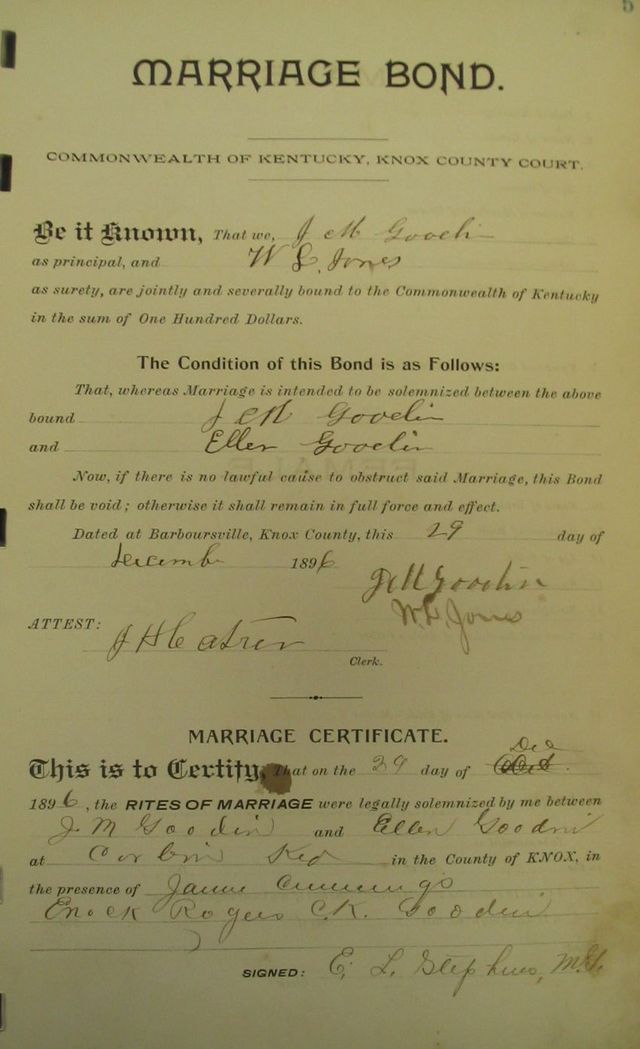 5
MARRIAGE BOND.
COMMONWEALTH OF KENTUCKY, KNOX COUNTY COURT.
Be it Known, That we, J M Goodin
as principal, and W L Jones
as surety, are jointly and severally bound to the Commonwealth of Kentucky
in the sum of One Hundred Dollars.
The Condition of this Bond is as Follows:
That, whereas Marriage is intended to be solemnized between the above
bound J M Goodin
and Ellen Goodin
Now, if there is no lawful cause to obstruct said Marriage, this Bond
shall be void; otherwise it shall remain in full force and effect.
Dated at Barboursville, Knox County, this 29 day of
December 1896
J M Goodin
W L Jones
ATTEST:
J H Catron
Clerk.
MARRIAGE CERTIFICATE.
Dec
This is to Certify, That on the 29 day of
1896, the RITES OF MARRIAGE were legally solemnized by me between
J. M Goodin and Ellen Goodin
at Corbin Ky in the County of KNOX, in
the presence of Cummings
Enoch Rogers C. K. Goodin
SIGNED: E. L. Stephens, M.G.